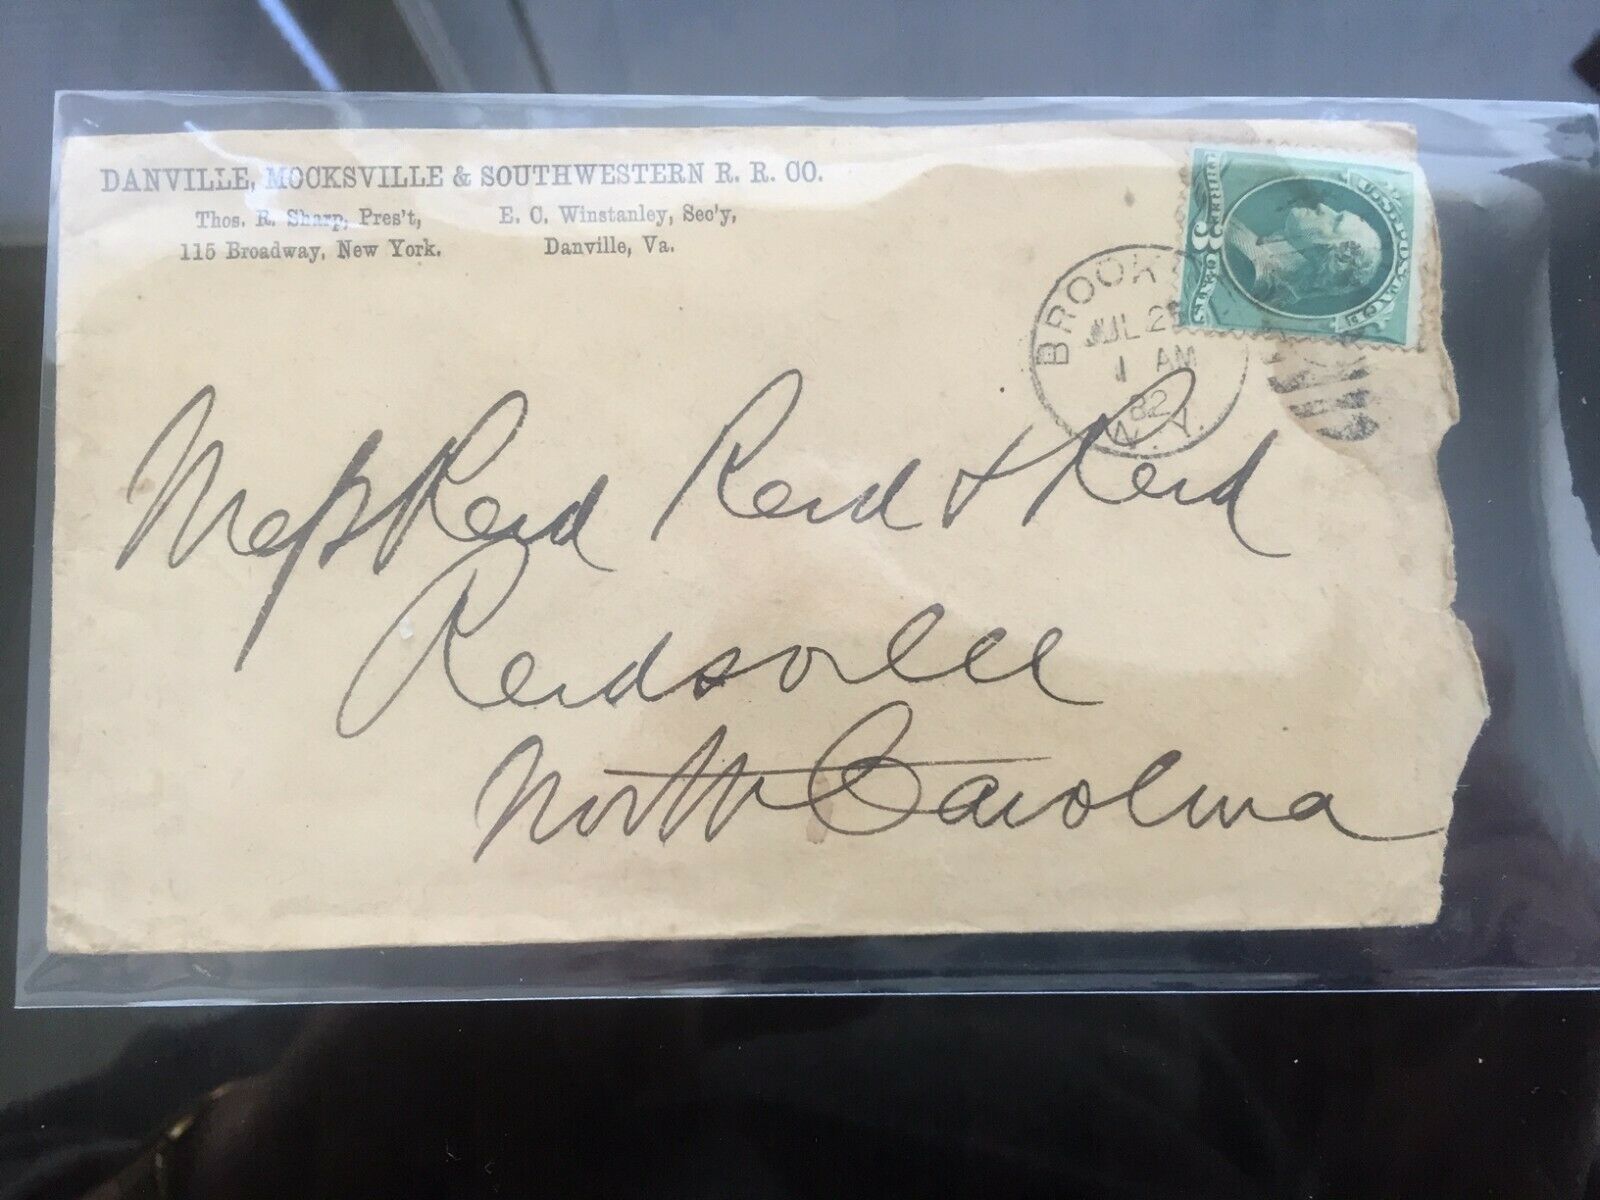 DANVILLE, MOCKSVILLE & SOUTHWESTERN R. R. CO.
Thos. R. Sharp, Pres't, E. C. Winstanley, Sec'y,
115 Broadway, New York. Danville, Va.
U.S. POSTAGE
3
THREE CENTS
BROOK
JUL 25
1 AM
82
N.Y.
Mess Reid Reid & Reid
Reidsville
North Carolina